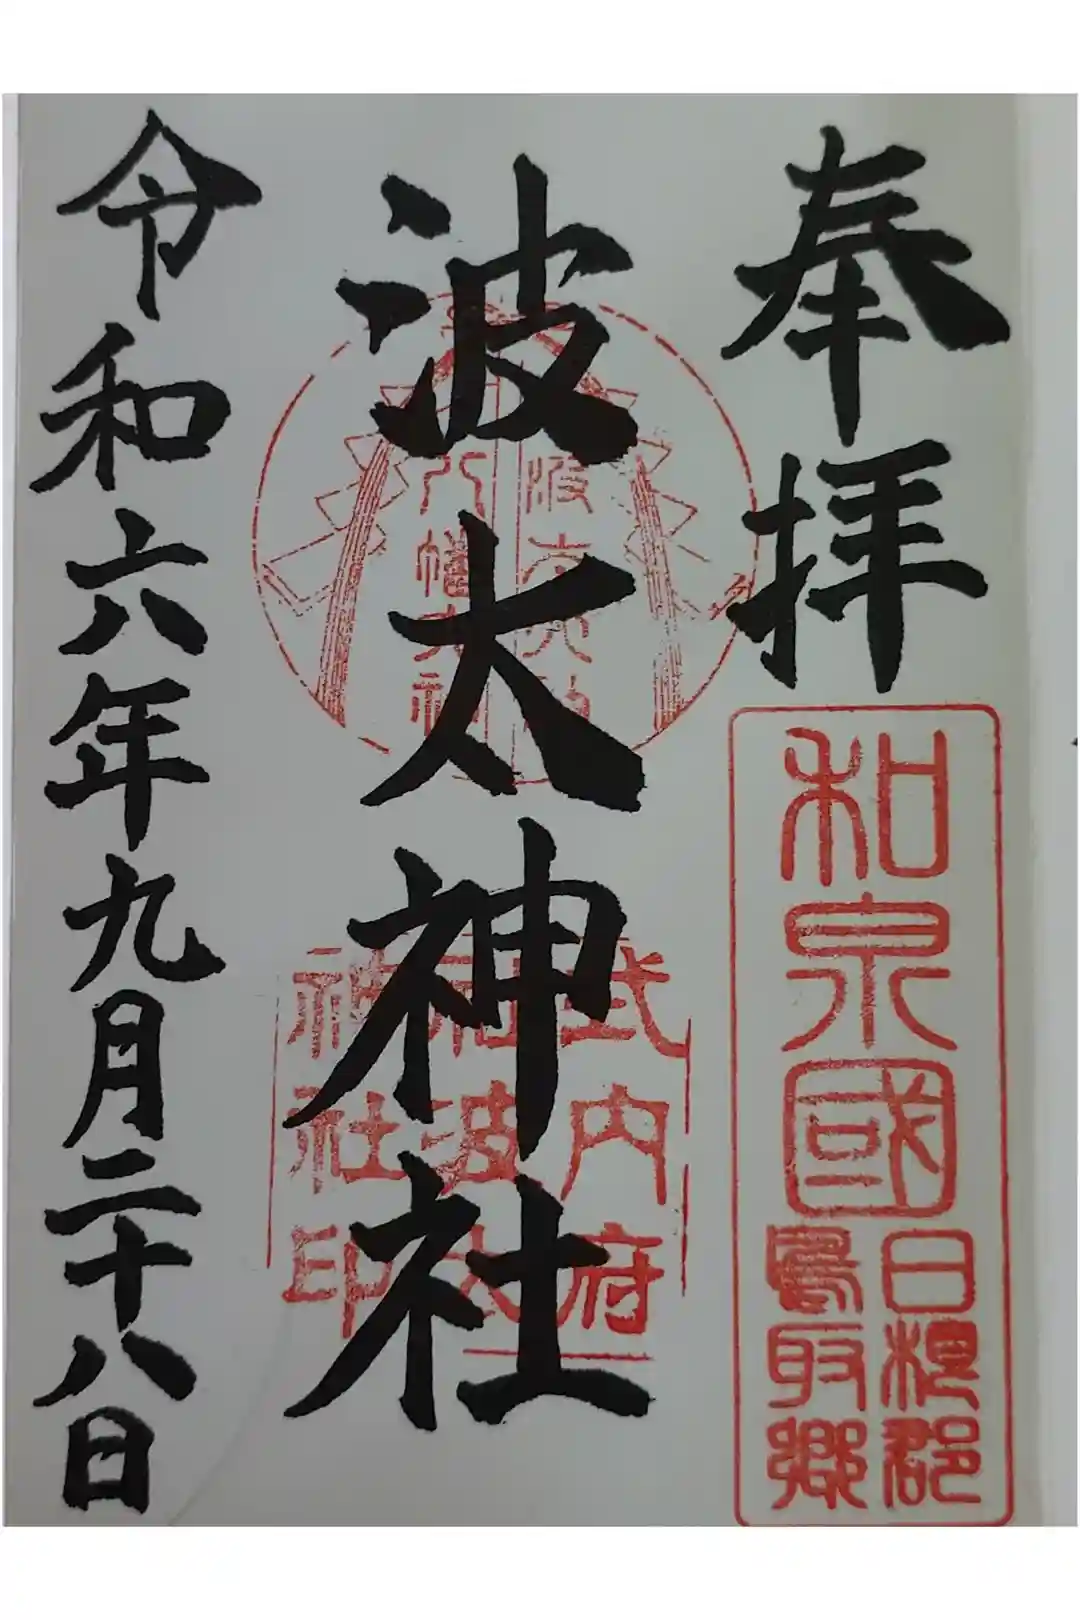 奉拝
和泉國
日根郡
鳥取郷
波太神社
八幡大神
式内府
社波太
神社印
令和六年九月二十八日